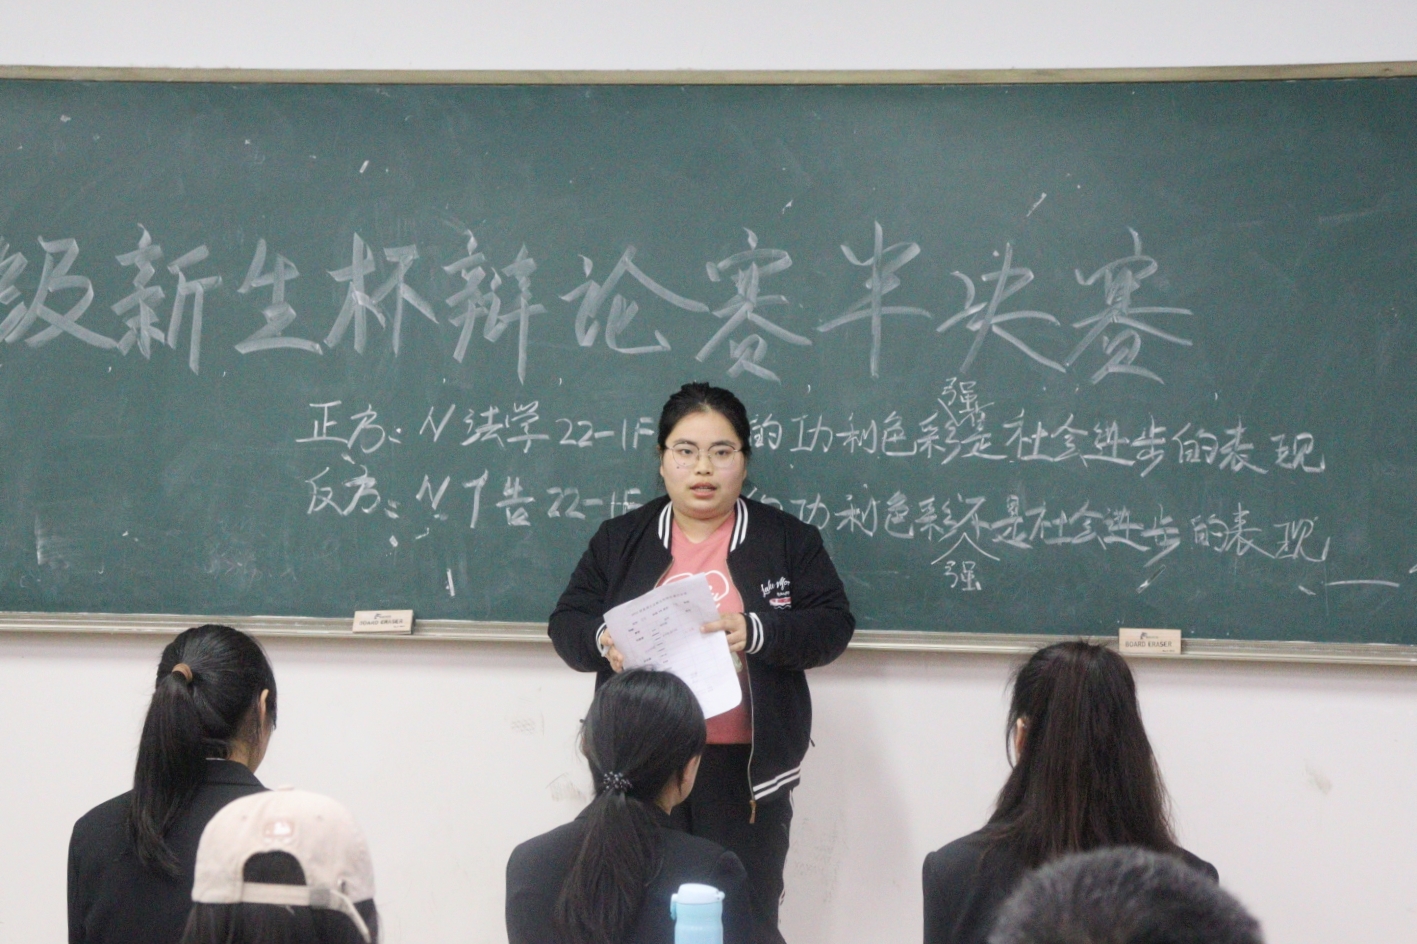 级新生杯辩论赛半决赛
强
正方：N法学22-1F 的功利色彩是社会进步的表现
反方：N广告22-1F 功利色彩不是社会进步的表现
强
BOARD ERASER
BOARD ERASER